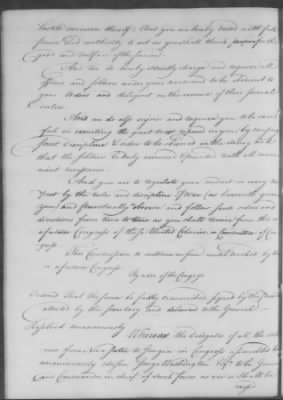 hostile invasion thereof; And you are hereby vested with full
power and authority to act as you shall think proper for the
good and welfare of the service.
And we do hereby strictly charge and require all
officers and soldiers under your command to be obedient to
your orders and diligent in the exercise of their several
duties.
And we do also enjoin and require you to be care
ful in executing the great trust reposed in you by causing
strict discipline & order to be observed in the army and
that the soldiers be duly exercised & provided with all conve
nient necessaries.
And you are to regulate your conduct in every res
pect by the rules and discipline of war (as herewith given
you) and punctually observe and follow such orders and
directions from time to time as you shall receive from this or
a future Congress of the sd United Colonies or Committee of Con
gress.
This Commission to continue in force until revoked by this
or a future Congress
By order of the Congress
Ordered That the same be fairly transcribed, signed by the
attested by the Secretary and delivered to the General
Resolved unanimously
Whereas the delegates of all the
nies from Nova Scotia to Georgia in Congress assembled have
unanimously chosen George Washington Esqr to be General &
Com in chief of such forces as are or shall be
raised